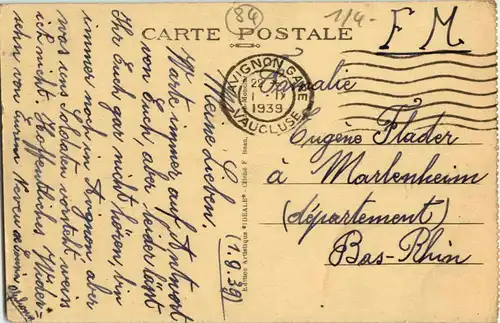 (84)
1/4-
CARTE POSTALE
F M.
AVIGNON GARE
1939
VAUCLUSE
Famalie
Eugène Flader
à Marlenheim
(département)
Bas-Rhin
Edition Artistique "IDEALE"
(1.9.39)
Meine Lieben.
Warte immer auf Antwort
von Euch, aber leider läßt
Ihr Euch gar nicht hören, bin
immer noch in Avignon aber
was uns Soldaten vorsteht weis
ich nicht. Hoffentliches Wieder=
sehn von eurem